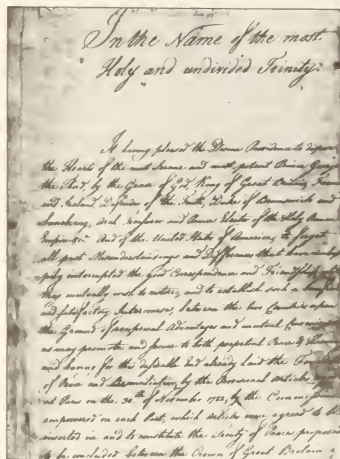 In the Name of the most
Holy and undivided Trinity.
It having pleased the Divine Providence to dispose
the Hearts of the most Serene and most potent Prince George
the Third, by the Grace of God, King of Great Britain, France
and Ireland, Defender of the Faith, Duke of Brunswick and
Lunebourg, Arch Treasurer and Prince Elector of the Holy Roman
Empire &c. And of the United States of America, to forget
all past Misunderstandings and Differences that have unhap
pily interrupted the good Correspondence and Friendship which
they mutually wish to restore; and to establish such a beneficial
and satisfactory Intercourse between the two Countries upon
the Ground of reciprocal Advantages and mutual Convenience
as may promote and secure to both perpetual Peace & Harmony
and having for this desirable End already laid the Foundation
of Peace and Reconciliation by the Provisional Articles
at Paris on the 30th of November 1782, by the Commissioners
empowered on each Part, which Articles were agreed to be
inserted in and to constitute the Treaty of Peace proposed
to be concluded between the Crown of Great Britain &